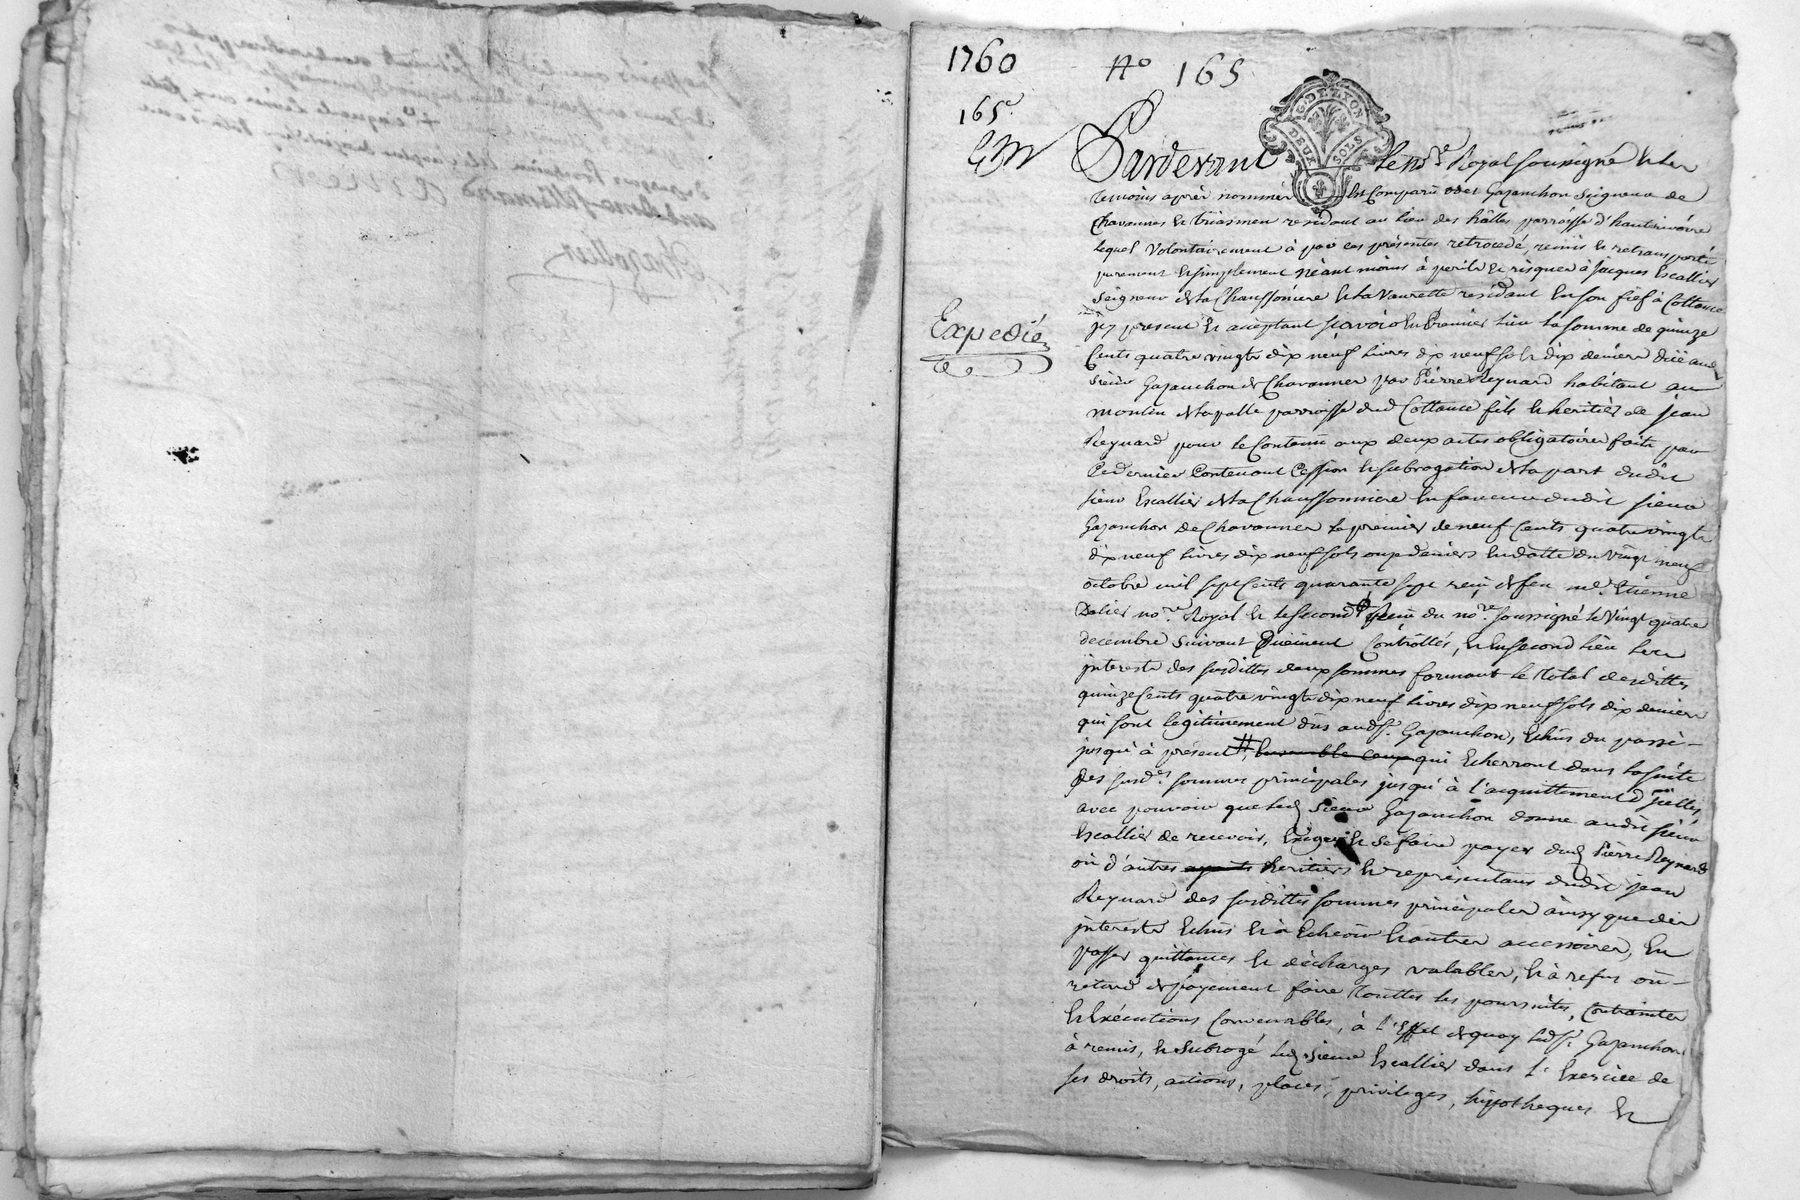 1760 No 165
165e
G. DE LYON
DEUX SOLS
Pardevant le nore Royal soussigné et les
temoins aprés nommés est Comparu odet Gazanchon Seigneur de
Chavannes et triasmen residant au lieu des hâlles parroisse d'hauterivoire
lequel volontairement à par ces présentes retrocedé, remis et retransporté
purement et simplement néant moins à perils et risques à Jacques Escallier
Seigneur de la Chaussoniere et la vaurette residant en son fief à Cottance
jcy present et acceptant scavoir en Premier lieu la somme de quinze
Cents quatre vingts dix neuf livres dix neuf sols dix deniers düe aud.
Expedié
sieur Gazanchon de Chavannes par Pierre Reynard habitant au
moulin de la palle parroisse dud. Cottance fils et heritier de jean
Reynard pour le Contenu aux deux actes obligatoires faits par
Ce dernier Contenant Cession et subrogation de la part dudit
sieur Escallier de la Chaussonniere en faveur dudit sieur
Gazanchon de Chavannes le premier de neuf Cents quatre vingts
dix neuf livres dix neuf sols onze deniers en datte du vingt neuf
octobre mil sept Cents quarante sept reçu de feu me. Etienne
nore. Royal et le second reçu du nore. soussigné le Vingt quatre
decembre suivant Duëment Contrôllés, et en second lieu les
interests des susdittes deux sommes formant le total desdittes
quinze Cents quatre vingts dix neuf livres dix neuf sols dix deniers
qui sont legitimement dûs audsr. Gazanchon, Echûs du passé
jusqu'à présent # Ensemble ceux qui Echerront dans la suitte
des susdes sommes principales jusqu'à l'acquittement d'jcelles,
avec pouvoir que led. sieur Gazanchon donne audit sieur
Escallier de recevoir, Exiger et se faire payer dud. Pierre Reynard
où d'autres heritiers et représentans dudit jean
Reynard des susdittes sommes principales ainsy que des
interests Echûs et à Echeoir et autres accessoires, En
passer quittances et décharges valables, et à refus où
retard de payement faire touttes les poursuites, Contraintes
et Exécutions Convenables, à l'Effet de quoy ledsr. Gazanchon
à remis, et subrogé led. sieur Escallier dans l'Exercice de
ses droits, actions, places, privileges, hypotheques et